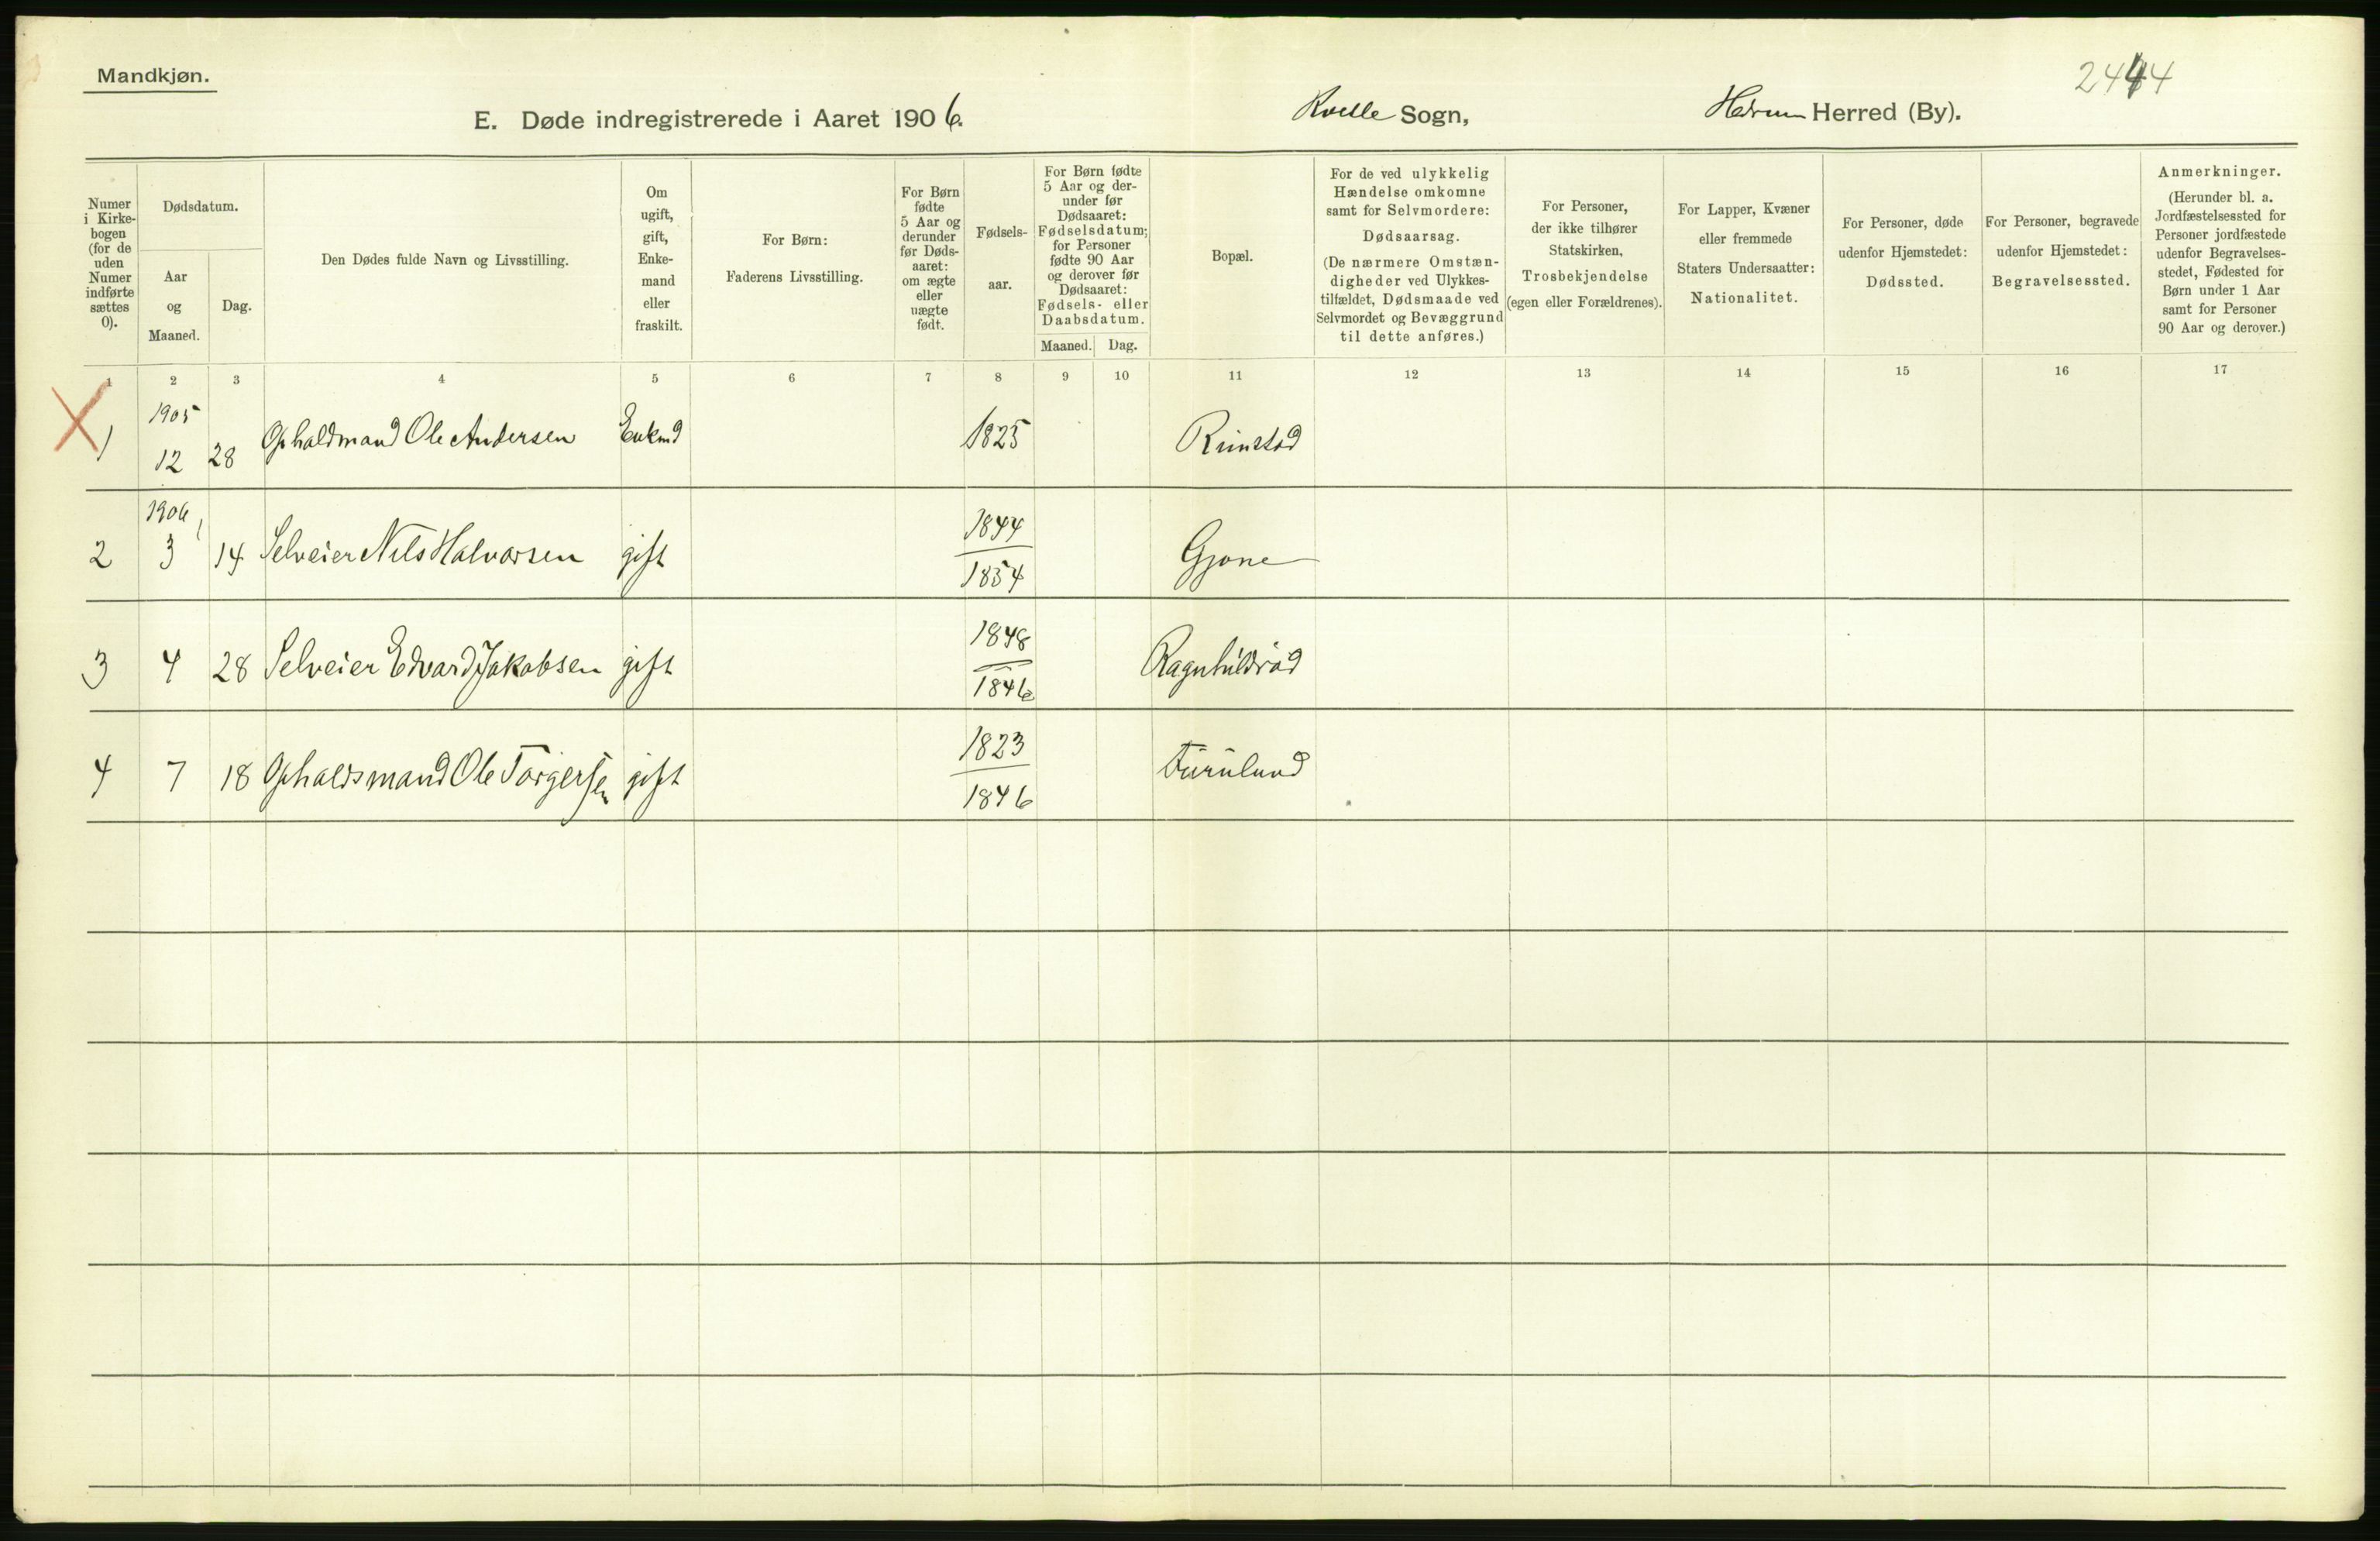 Mandkjøn.
2444
E. Døde indregistrerede i Aaret 1906. Kvelle Sogn, Hedrum Herred (By).
Numer i Kirkebogen (for de uden Numer indførte sættes 0).
Dødsdatum.
Aar og Maaned.
Dag.
Den Dødes fulde Navn og Livsstilling.
Om ugift, gift, Enkemand eller fraskilt.
For Børn:
Faderens Livsstilling.
For Børn fødte 5 Aar og derunder før Dødsaaret: om ægte eller uægte født.
Fødselsaar.
For Børn fødte 5 Aar og derunder før Dødsaaret: Fødselsdatum; for Personer fødte 90 Aar og derover før Dødsaaret: Fødsels- eller Daabsdatum.
Maaned. Dag.
Bopæl.
For de ved ulykkelig Hændelse omkomne samt for Selvmordere:
Dødsaarsag.
(De nærmere Omstændigheder ved Ulykkestilfældet, Dødsmaade ved Selvmordet og Bevæggrund til dette anføres.)
For Personer, der ikke tilhører Statskirken, Trosbekjendelse (egen eller Forældrenes).
For Lapper, Kvæner eller fremmede Staters Undersaatter: Nationalitet.
For Personer, døde udenfor Hjemstedet: Dødssted.
For Personer, begravede udenfor Hjemstedet: Begravelsessted.
Anmerkninger.
(Herunder bl. a. Jordfæstelsessted for Personer jordfæstede udenfor Begravelsesstedet, Fødested for Børn under 1 Aar samt for Personer 90 Aar og derover.)
1 2 3 4 5 6 7 8 9 10 11 12 13 14 15 16 17
1 1905 12 28 Ophaldmand Ole Andersen Enkmd 1825 Rimstad
2 1906 3 14 Selveier Nils Halvorsen gift 1844 1854 Gjone
3 4 28 Selveier Edvard Jakobsen gift 1848 1846 Ragnhildrød
4 7 18 Ophaldsmand Ole Torgersen gift 1823 1846 Furulund